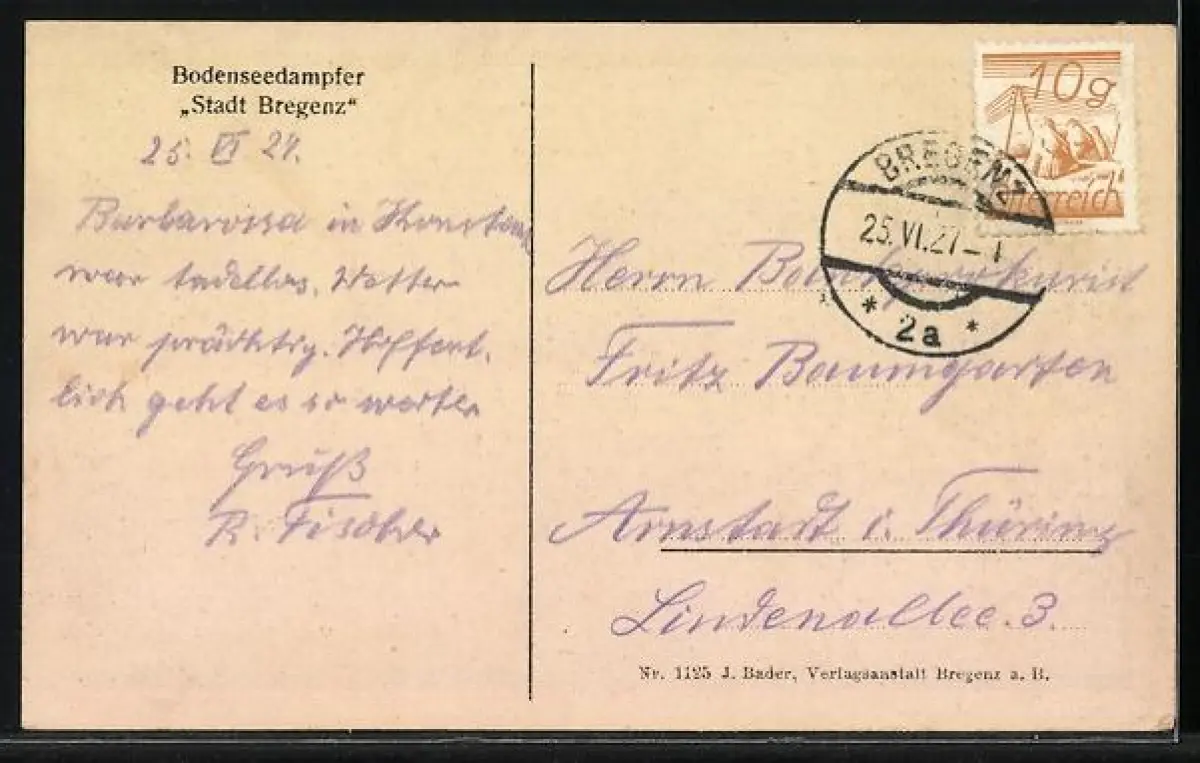 Bodenseedampfer
„Stadt Bregenz“
25. VI 27.
Barbarossa in Konstanz
war tadellos. Wetter
war prächtig. Hoffent-
lich geht es so weiter
Gruß
R. Fischer
10g
Österreich
BREGENZ
25.VI.27–1
* 2a *
Herrn Bankprokurist
Fritz Baumgarten
Arnstadt i. Thüring
Lindenallee 3.
Nr. 1125 J. Bader, Verlagsanstalt Bregenz a. B.